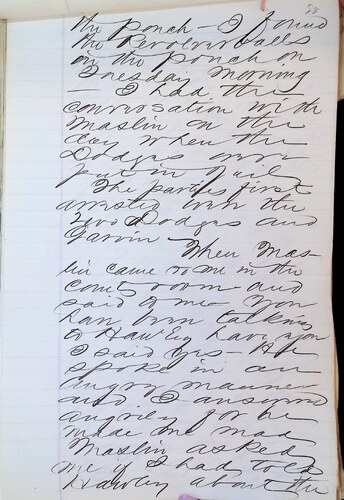 58
the porch - I found
the Revolver balls
on the porch on
Tuesday morning
- I had the
conversation with
Maslin on the
day when the
Dodges were
put in Jail
The parties first
arrested were the
two Dodges and
Garvin - When Mas-
lin came to me in the
court room and
said to me you
have been talking
to Hawley have you
I said yes - He
spoke in an
angry manner
and I answered
angrily for he
made me mad
Maslin asked
me if I had told
Hawley about the